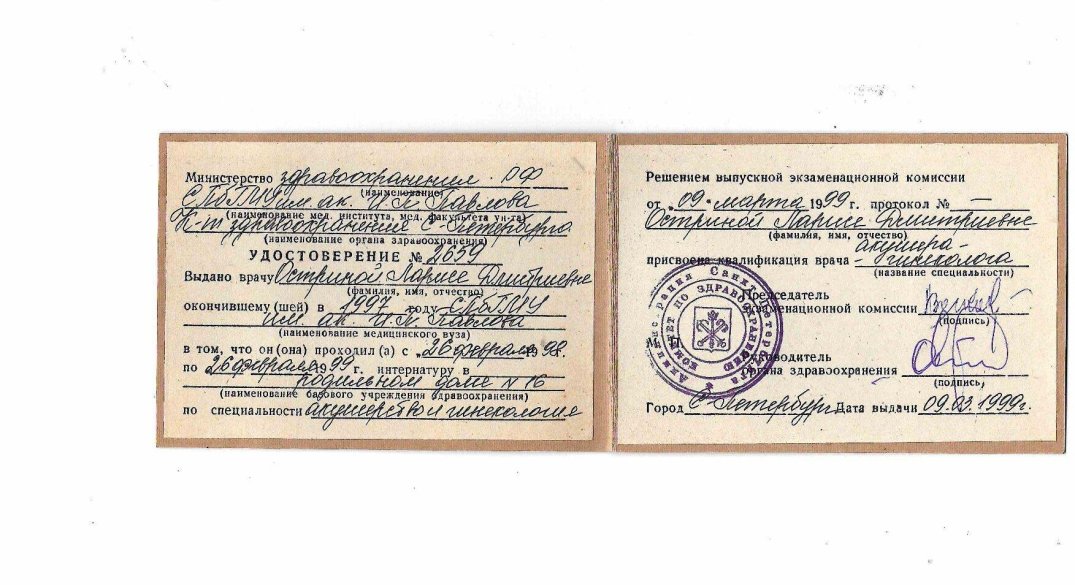 Министерство здравоохранения РФ
(наименование)
СПбГМУ им. ак. И.П. Павлова
(наименование мед. института, мед. факультета ун-та)
К-т здравоохранения С-Петербурга
(наименование органа здравоохранения)
УДОСТОВЕРЕНИЕ № 2659
Выдано врачу Остриной Ларисе Дмитриевне
(фамилия, имя, отчество)
окончившему (шей) в 1997 году СПбГМУ
им. ак. И.П. Павлова
(наименование медицинского вуза)
в том, что он (она) проходил (а) с „26 февраля 1998г.
по 26 февраля 1999 г. интернатуру в
родильном доме N 16
(наименование базового учреждения здравоохранения)
по специальности акушерство и гинекология
Решением выпускной экзаменационной комиссии
от „09" марта 1999 г. протокол № —
Остриной Ларисе Дмитриевне
(фамилия, имя, отчество)
акушера-
присвоена квалификация врача - гинеколога
(название специальности)
Председатель
экзаменационной комиссии
(подпись)
М. П.
Руководитель
органа здравоохранения
(подпись)
Город С-Петербург Дата выдачи 09.03.1999г.
Администрация Санкт-Петербурга
КОМИТЕТ ПО ЗДРАВООХРАНЕНИЮ